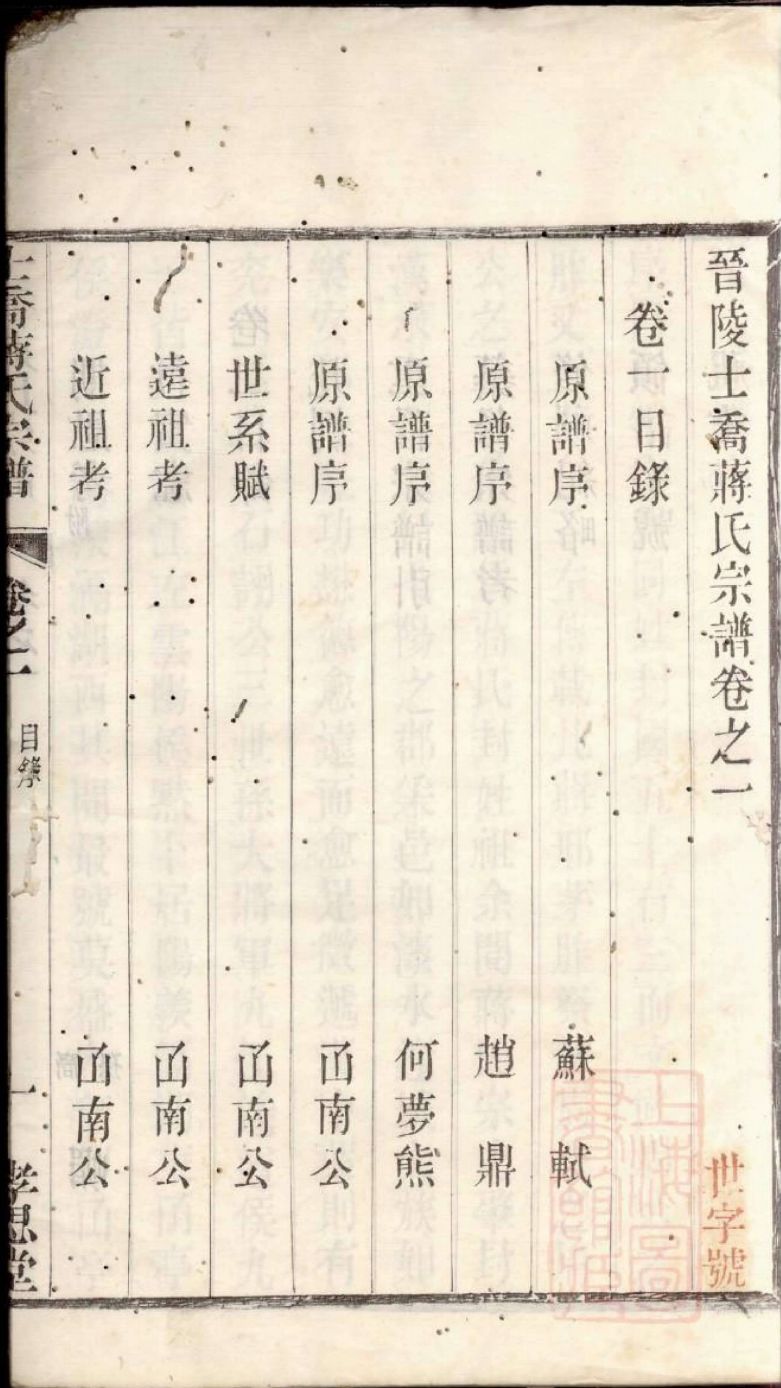 晉陵士喬蔣氏宗譜卷之一
世字號
卷一目錄
原譜序 蘇軾
原譜序 趙鼎
原譜序 何夢熊
原譜序 凾南公
世系賦 凾南公
遠祖考 凾南公
近祖考 凾南公
士喬蔣氏宗譜 卷之一 目錄 一 孝思堂
上海圖書館藏